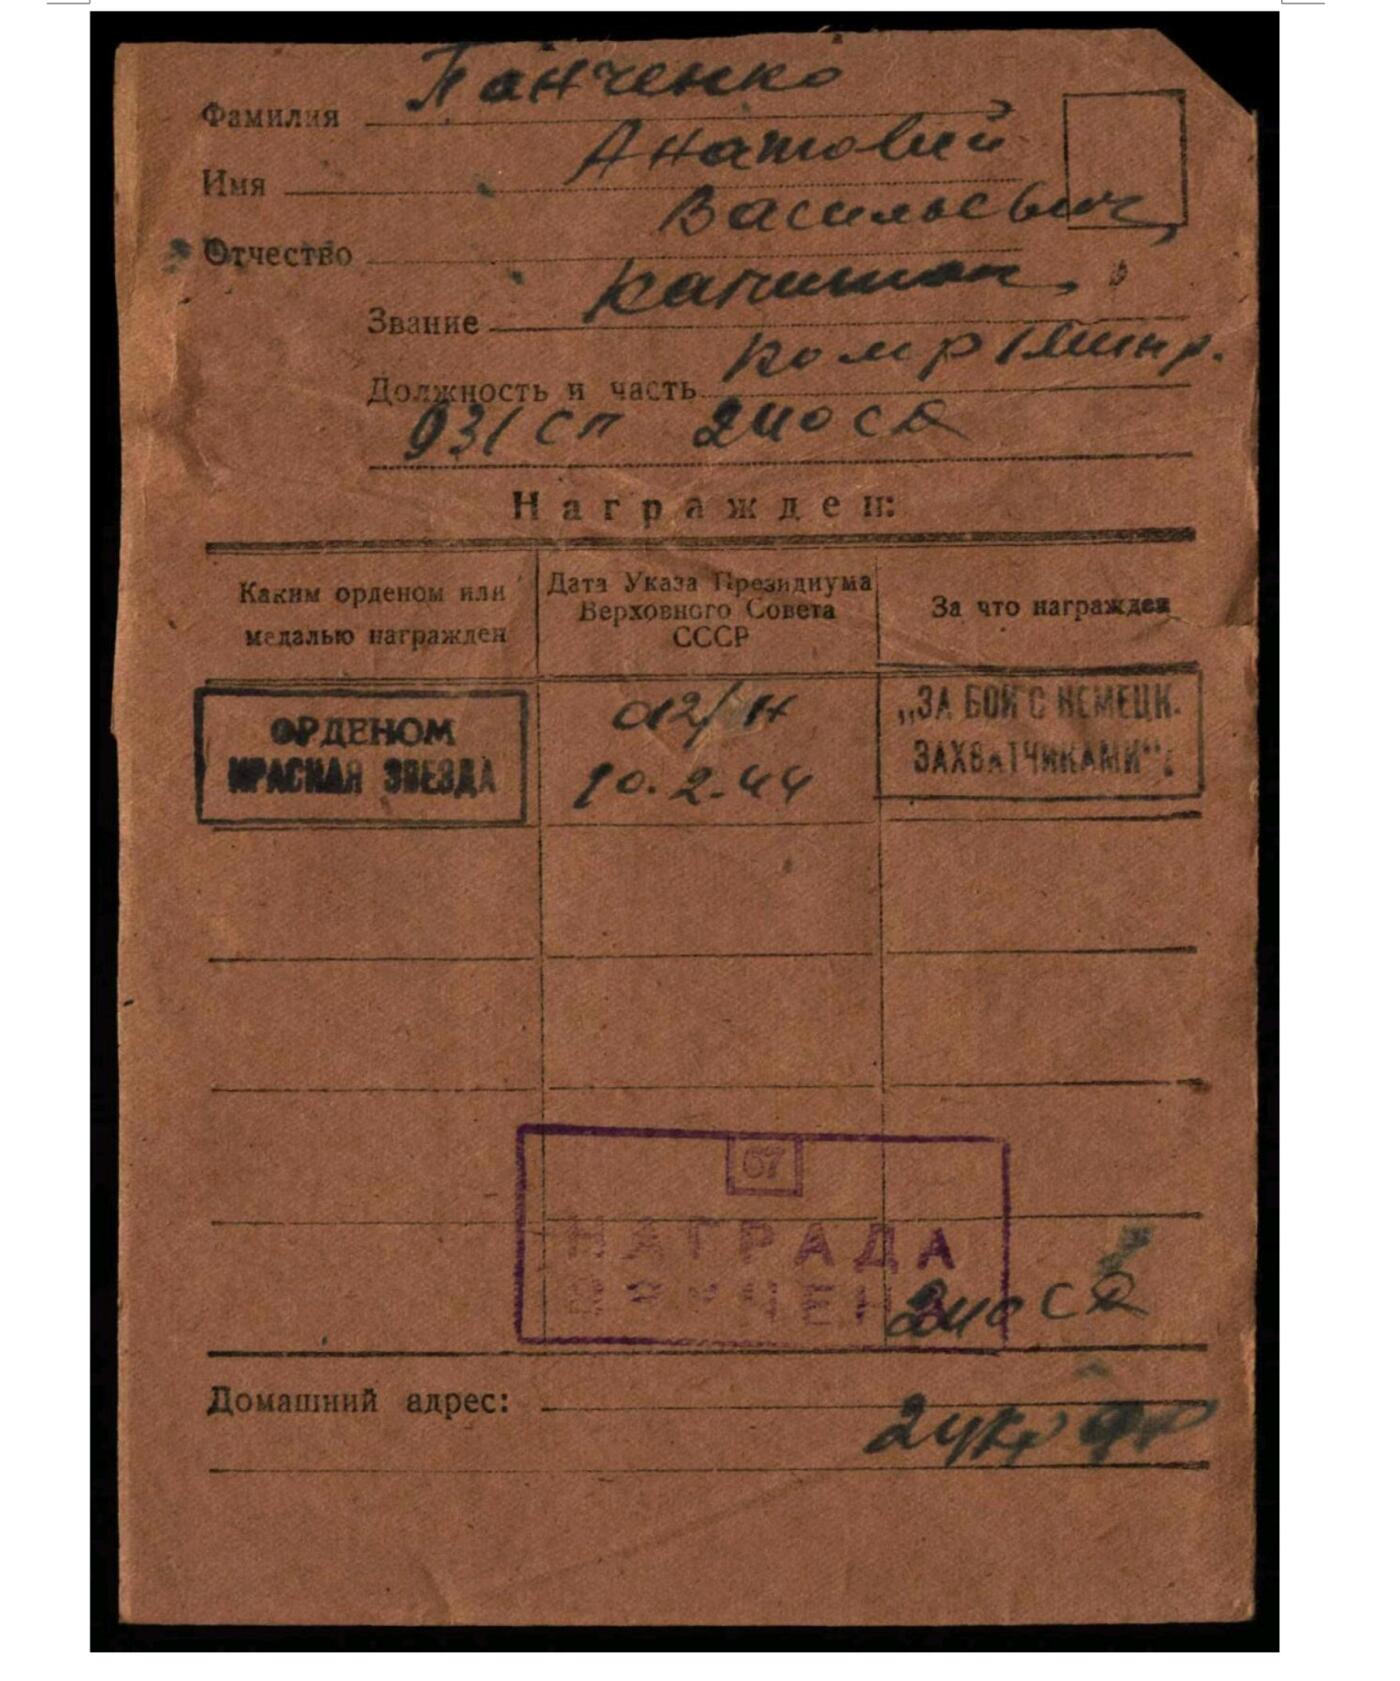 Фамилия Панченко
Имя Анатолий
Отчество Васильевич
Звание капитан
Должность и часть ком р
931 сп 240 сд
Награжден:
Каким орденом или медалью награжден
Дата Указа Президиума Верховного Совета СССР
За что награжден
ОРДЕНОМ
КРАСНАЯ ЗВЕЗДА
012/н
10.2.44
„ЗА БОИ С НЕМЕЦК.
ЗАХВАТЧИКАМИ“.
67
НАГРАДА
ВРУЧЕНА
240 сд
Домашний адрес:
2 укр фр